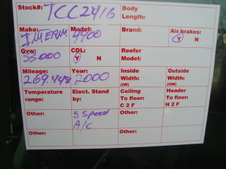 Stock# TCC2415 Body Length:
Make: Model: 4900 Brand: Air brakes: Y N
Gvw: 33,000 CDL: Y N Reefer Model:
Mileage: Year: 2000 Inside Width: Outside Width:
Temperature range: Elect. Stand by Ceiling To floor: C 2 F Header To floor: H 2 F
Other: 5 Speed A/C Other: Other:
Other: Other: Other: Other: